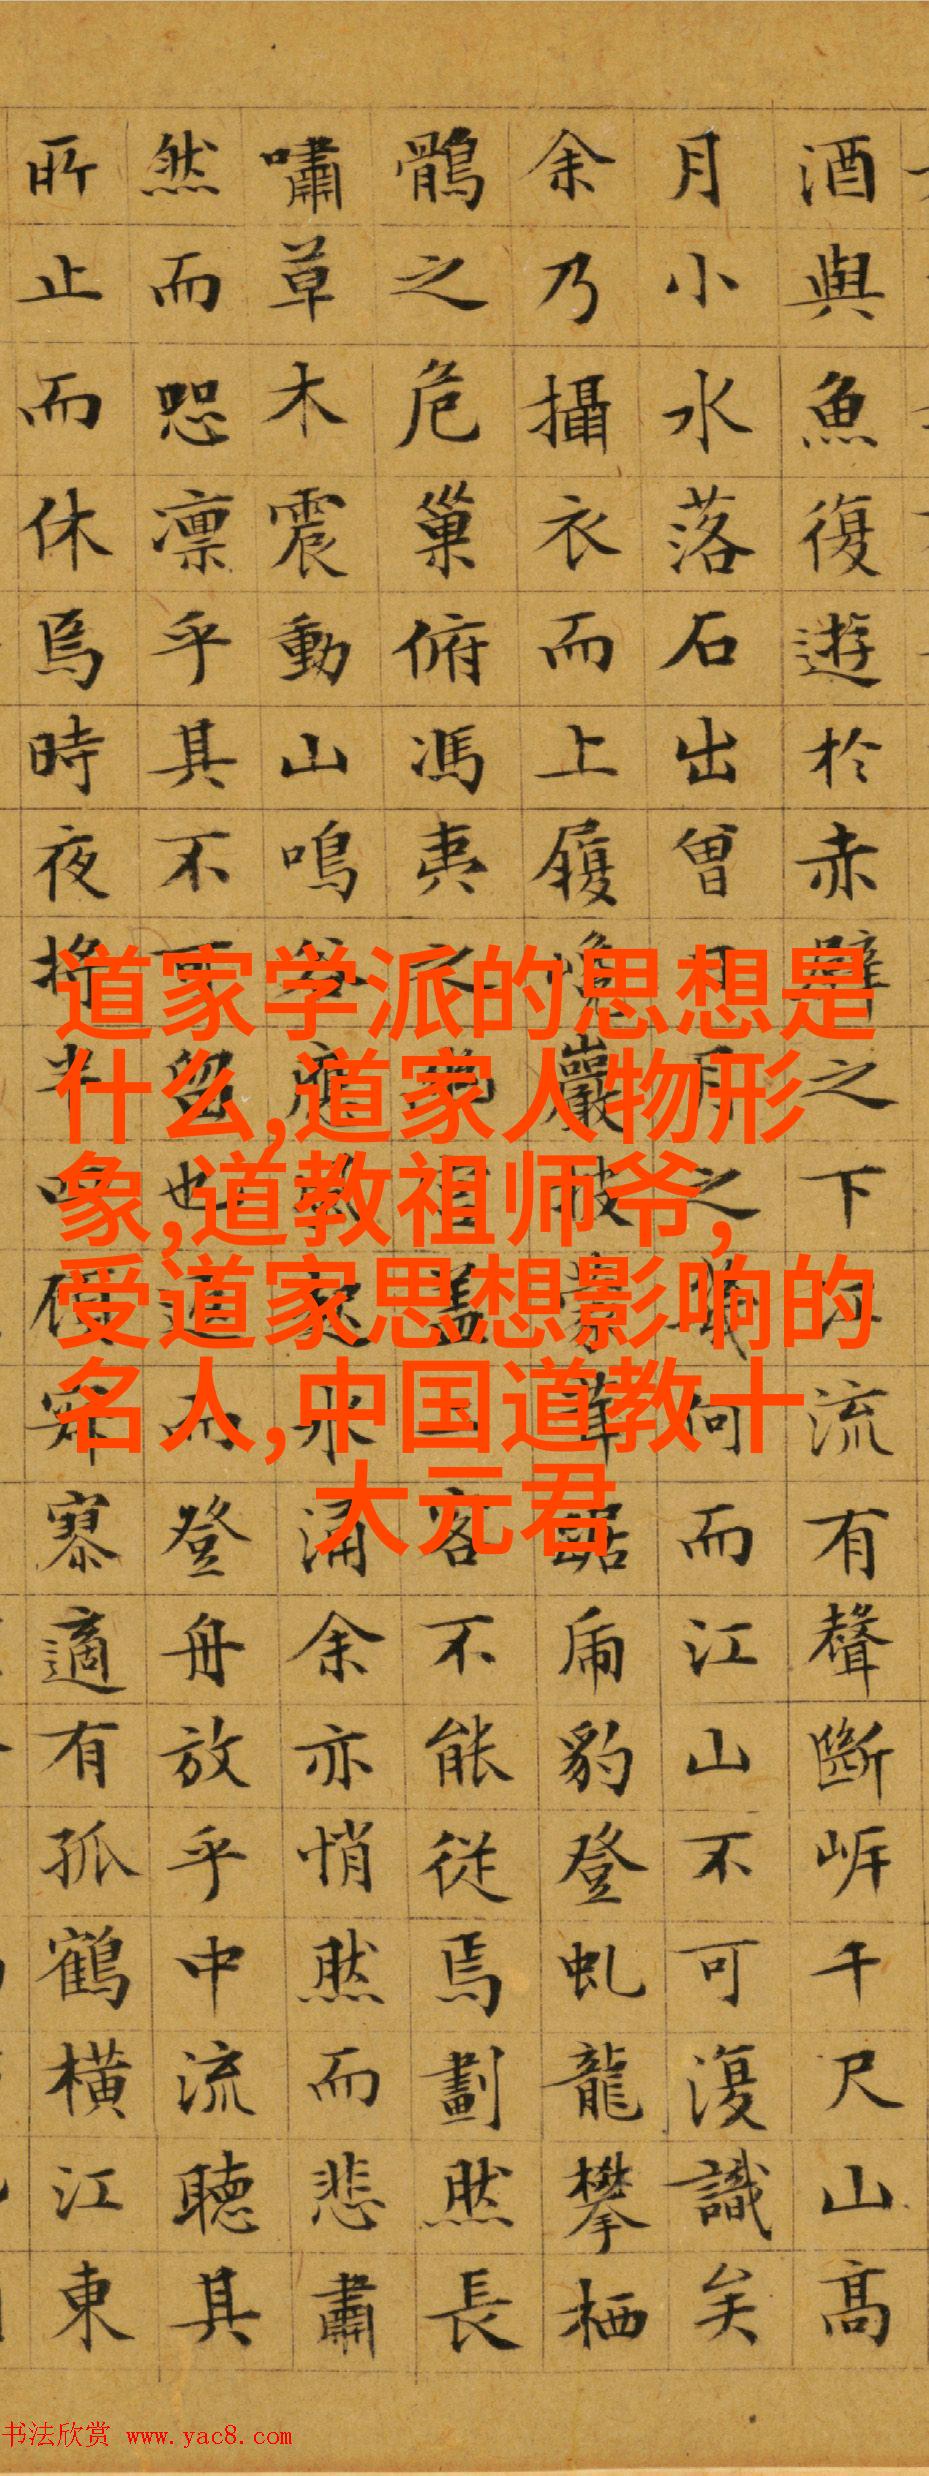 酒與魚復遊於赤壁之下江流有聲斷岸千尺山高
月小水落石出曾日月之幾何而江山不可復識矣
余乃攝衣而上履巉巖披蒙茸踞虎豹登虬龍攀栖
鶻之危巢俯馮夷之宮蓋二客不能從焉劃然長
嘯草木震動山鳴谷應起水涌余亦悄然而悲肅
然而恐凜乎其不可留也而登舟放乎中流聽其
所止而休焉時夜將半顧寥適有孤鶴橫江東
道家学派的思想是
什么,道家人物形
象,道教祖师爷,
受道家思想影响的
名人,中国道教十
大元君
书法欣赏 www.yac8.com